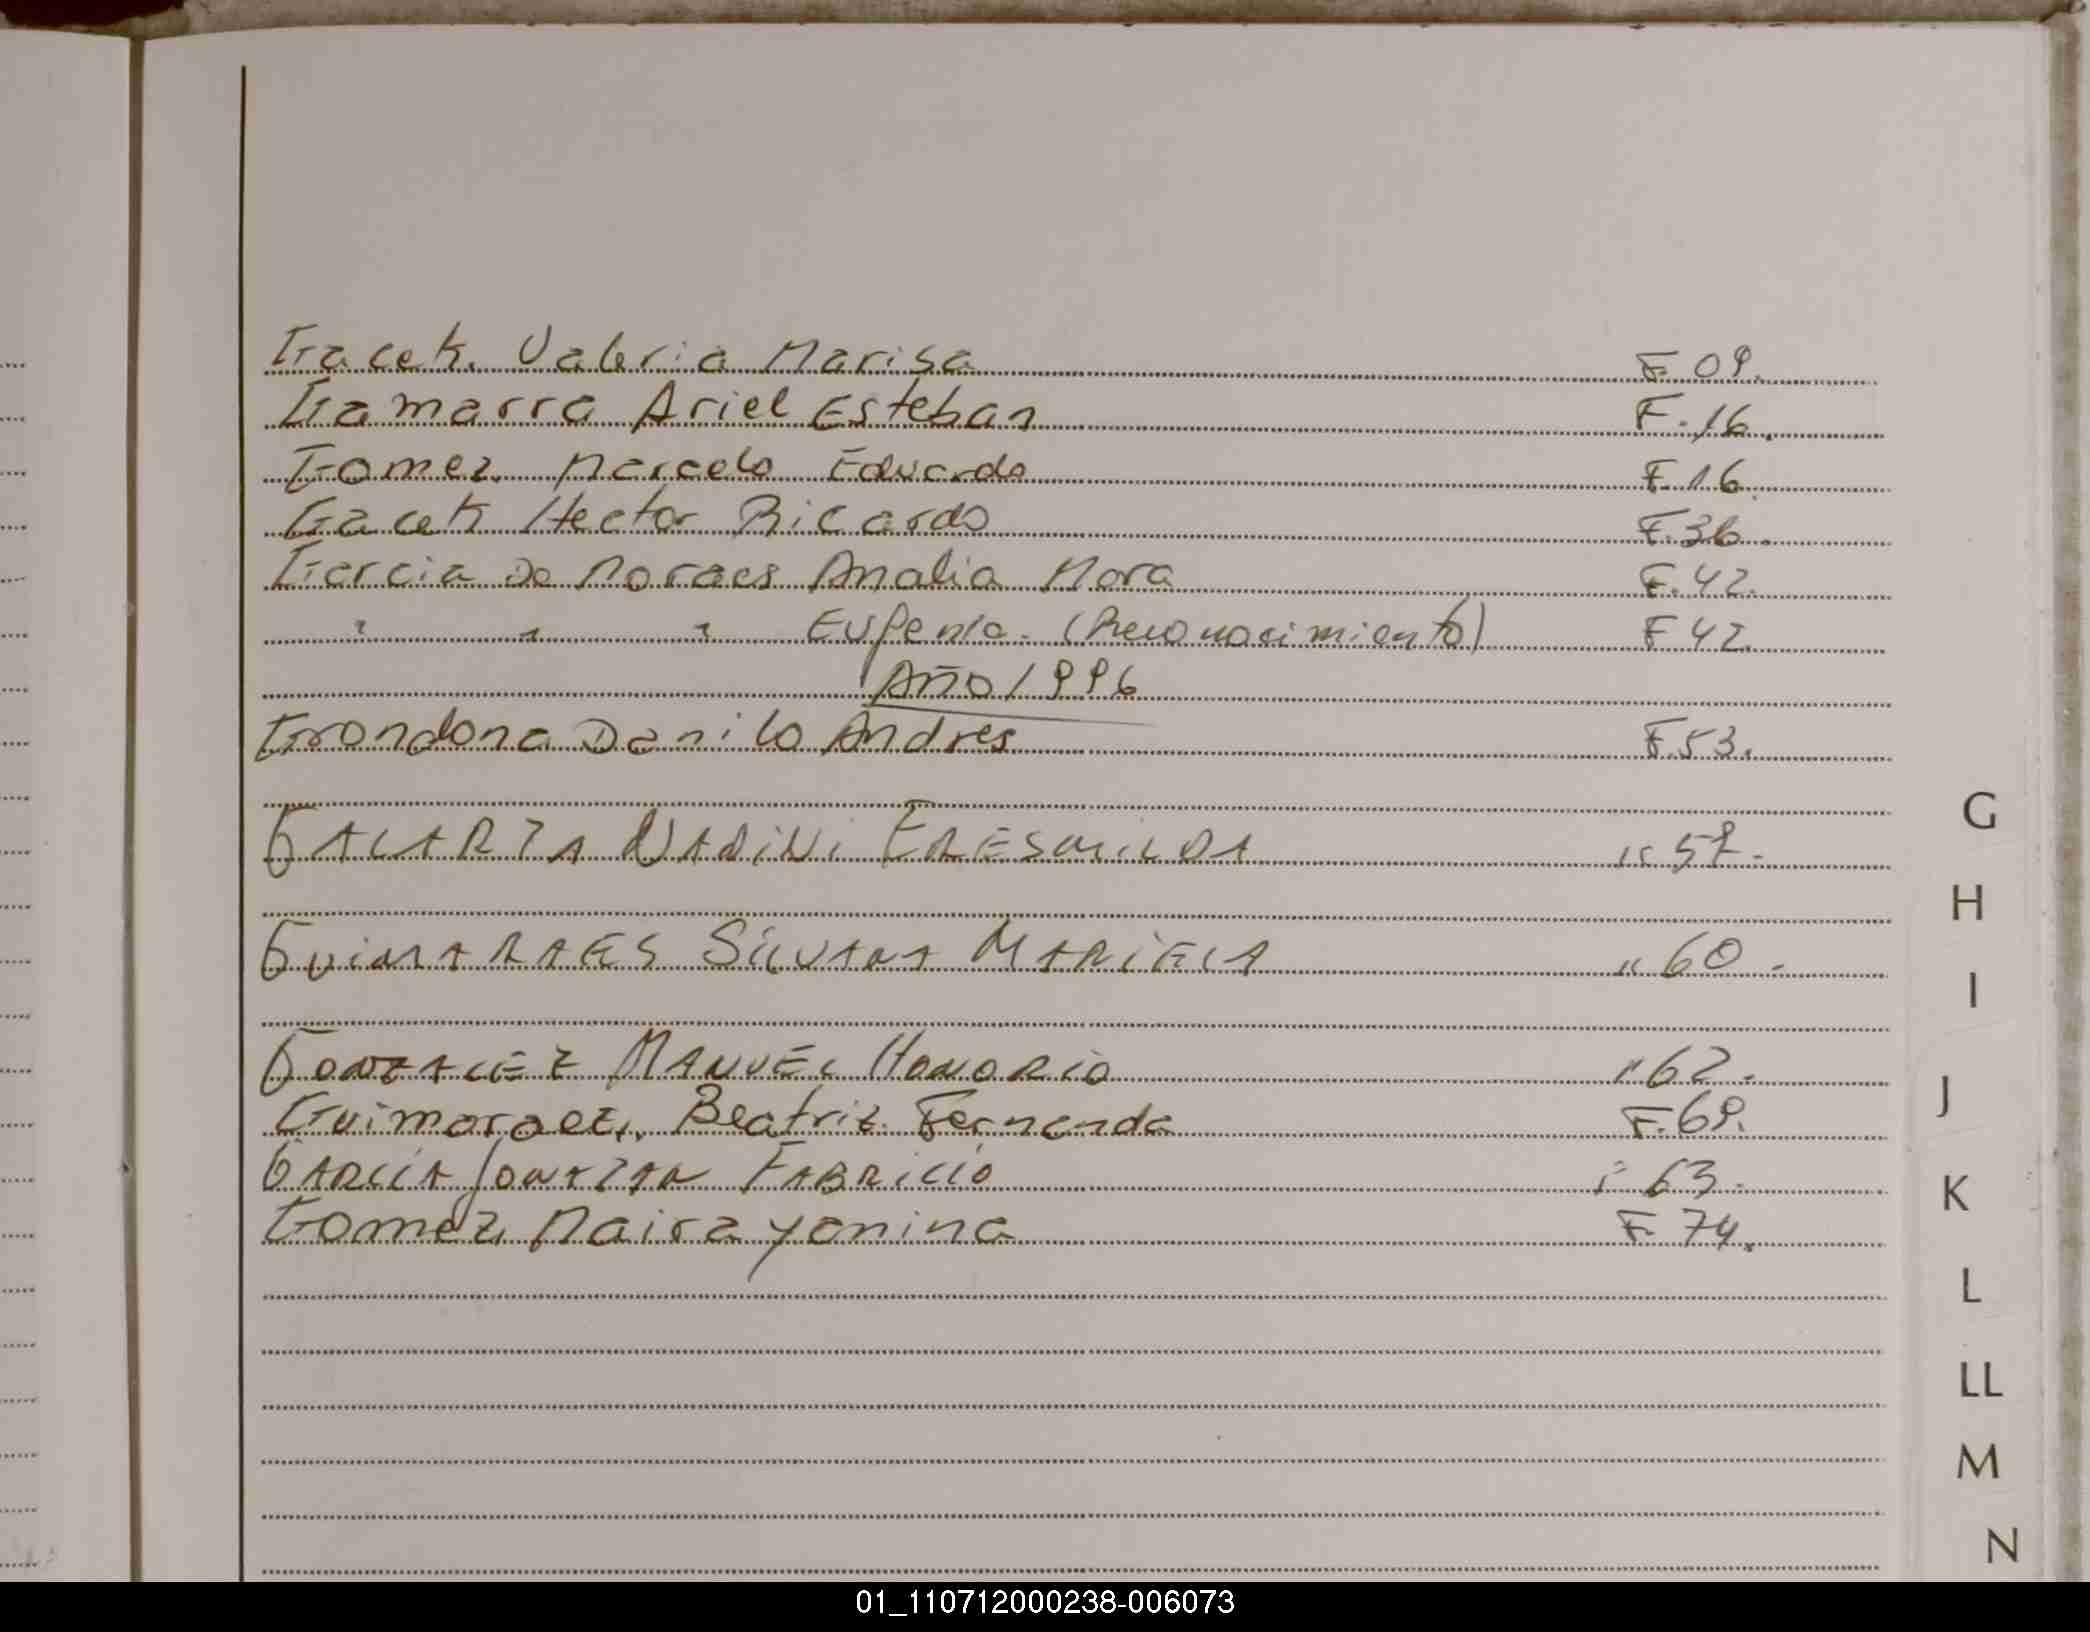 Gacek, Valeria Marisa F. 09.
Gamarra Ariel Esteban F. 16.
Gomez, Marcelo Eduardo F. 16.
Gacek Hector Ricardo F. 36.
Garcia Do Moraes Analia Mora F. 42.
" " " Eugenia. (Reconocimiento) F 42.
Año 1996
Grondona Danilo Andres F. 53.
GALARZA NADiNi ERESMiLDA " 57.
GUiMARAES SiLVANA MARiELA " 60.
GONZALEZ MANUEL HONORiO " 62.
Guimaraez, Beatriz Fernanda F. 69.
GARCíA JONATAN FABRiCiO " 63.
Gomez Naira yanina F. 74.
G
H
I
J
K
L
LL
M
N
01_110712000238-006073